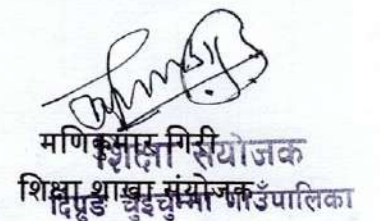 मणिकुमार गिरी
शिक्षा संयोजक
शिक्षा शाखा संयोजक
दिप्रुङ चुइचुम्मा गाउँपालिका